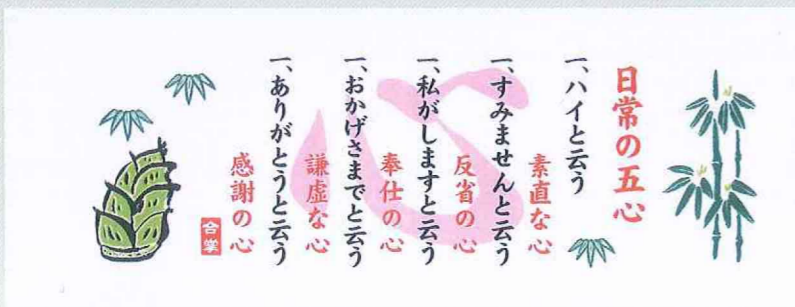 日常の五心
一、ハイと云う
素直な心
一、すみませんと云う
反省の心
一、私がしますと云う
奉仕の心
一、おかげさまでと云う
謙虚な心
一、ありがとうと云う
感謝の心
合掌
心